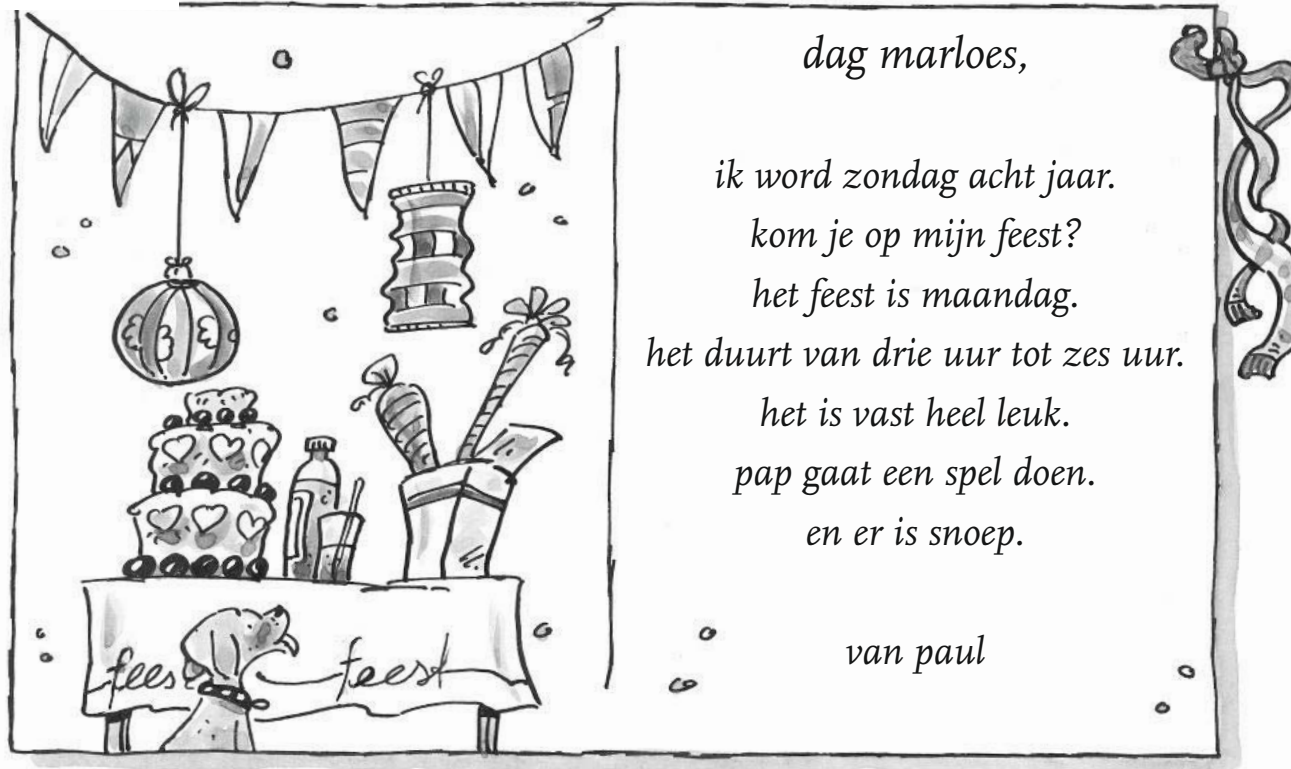 dag marloes,
ik word zondag acht jaar.
kom je op mijn feest?
het feest is maandag.
het duurt van drie uur tot zes uur.
het is vast heel leuk.
pap gaat een spel doen.
en er is snoep.
van paul
fees feest